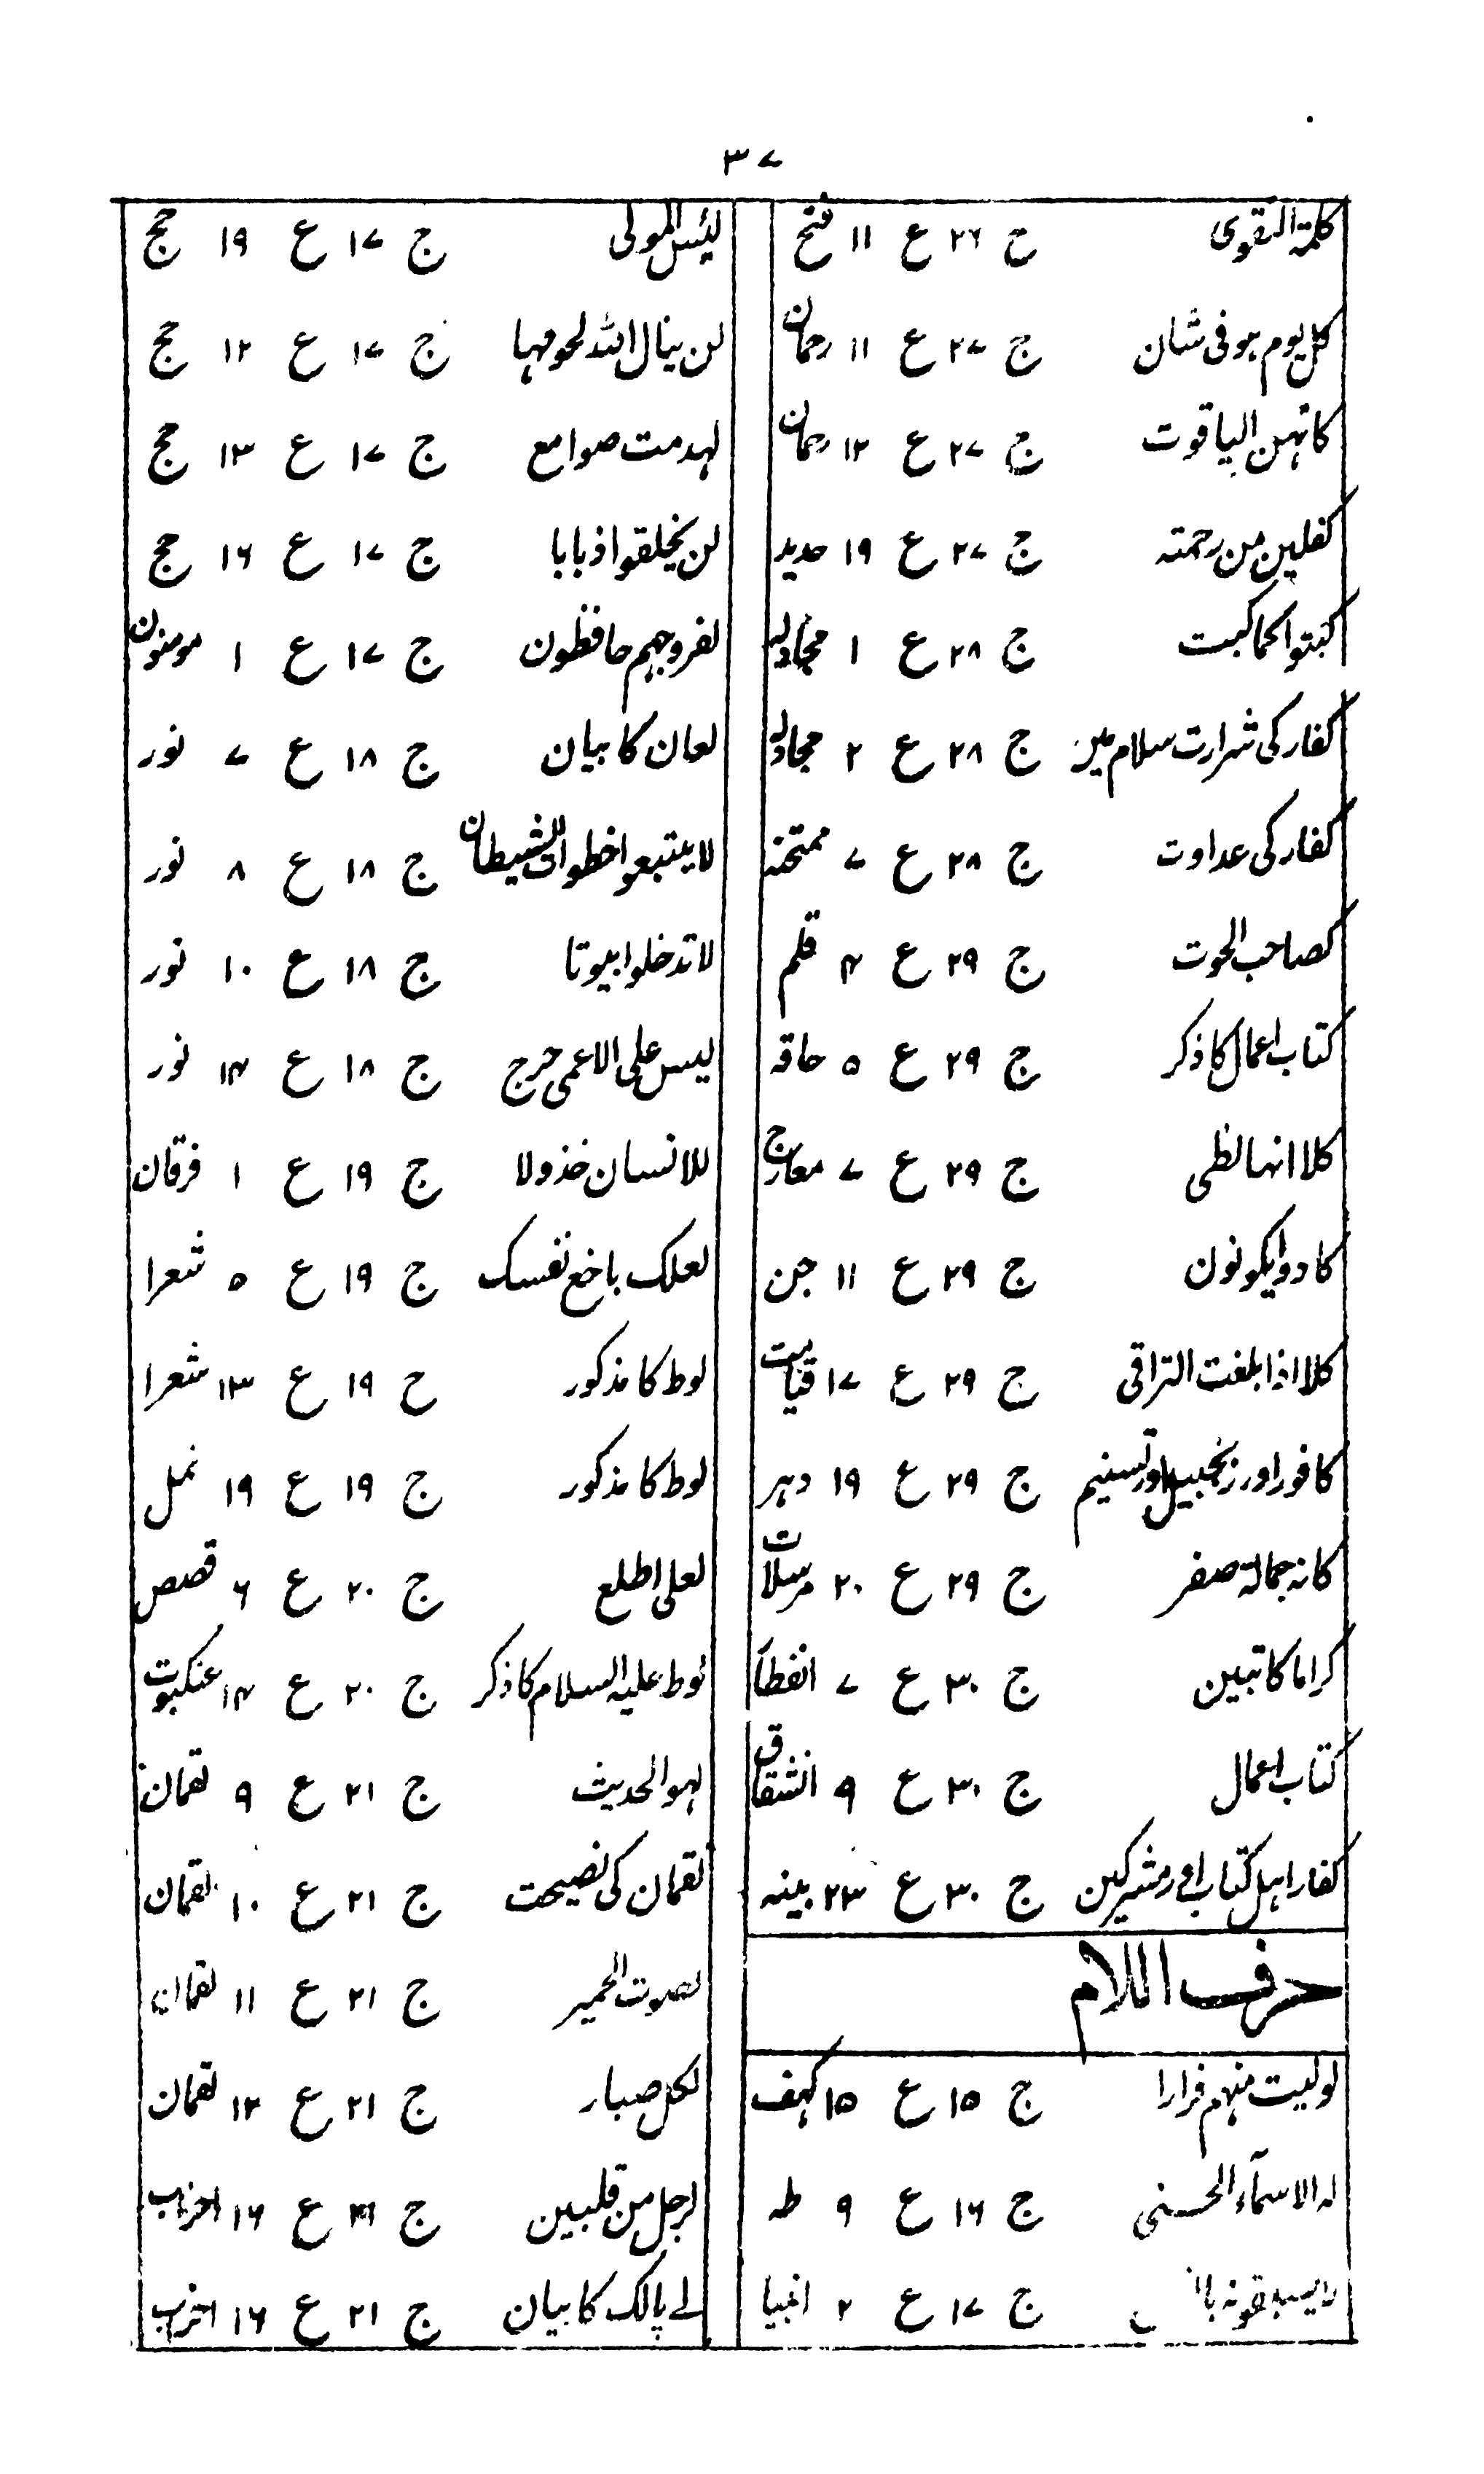 ۳۷
کلمۃ التقوی ج ۲۶ ع ۱۱ فتح
کل یوم ہو فی شان ج ۲۷ ع ۱۱ رحمان
کانہن الیاقوت ج ۲۷ ع ۱۲ رحمان
کفلین من رحمتہ ج ۲۷ ع ۱۹ حدید
کبتوا کما کبت ج ۲۸ ع ۱ مجادلہ
کفار کی شرارت سلام میں ج ۲۸ ع ۲ مجادلہ
کفار کی عداوت ج ۲۸ ع ۷ ممتحنہ
کصاحب الحوت ج ۲۹ ع ۴ قلم
کتاب اعمال کا ذکر ج ۲۹ ع ۵ حاقہ
کلا انہا لظی ج ۲۹ ع ۷ معارج
کادوا یکونون ج ۲۹ ع ۱۱ جن
کلا اذا بلغت التراقی ج ۲۹ ع ۱۷ قیامت
کافور اور زنجبیل اور تسنیم ج ۲۹ ع ۱۹ دہر
کانہ جمالۃ صفر ج ۲۹ ع ۲۰ مرسلات
کراما کاتبین ج ۳۰ ع ۷ انفطار
کتاب اعمال ج ۳۰ ع ۹ انشقاق
کفار اہل کتاب اور مشرکین ج ۳۰ ع ۲۳ بینہ
حرف اللام
لولیت منہم فرارا ج ۱۵ ع ۱۵ کہف
لہ الاسمآء الحسنی ج ۱۶ ع ۹ طہ
لا یسبقونہ ج ۱۷ ع ۲ انبیا
لبئس المولی ج ۱۷ ع ۱۹ حج
لن ینال اللہ لحومہا ج ۱۷ ع ۱۲ حج
لہدمت صوامع ج ۱۷ ع ۱۳ حج
لن یخلقوا ذبابا ج ۱۷ ع ۱۶ حج
لفروجہم حافظون ج ۱۷ ع ۱ مومنون
لعان کا بیان ج ۱۸ ع ۷ نور
لا یتبعوا خطوات الشیطان ج ۱۸ ع ۸ نور
لا تدخلوا بیوتا ج ۱۸ ع ۱۰ نور
لیس علی الاعمی حرج ج ۱۸ ع ۱۴ نور
للانسان خذولا ج ۱۹ ع ۱ فرقان
لعلک باخع نفسک ج ۱۹ ع ۵ شعرا
لوط کا مذکور ج ۱۹ ع ۱۳ شعرا
لوط کا مذکور ج ۱۹ ع ۱۹ نمل
لعلی اطلع ج ۲۰ ع ۶ قصص
لوط علیہ السلام کا ذکر ج ۲۰ ع ۱۴ عنکبوت
لہو الحدیث ج ۲۱ ع ۹ لقمان
لقمان کی نصیحت ج ۲۱ ع ۱۰ لقمان
لصوت الحمیر ج ۲۱ ع ۱۱ لقمان
لکل صبار ج ۲۱ ع ۱۲ لقمان
لرجل من قلبین ج ۲۱ ع ۱۶ احزاب
لے پالک کا بیان ج ۲۱ ع ۱۶ احزاب